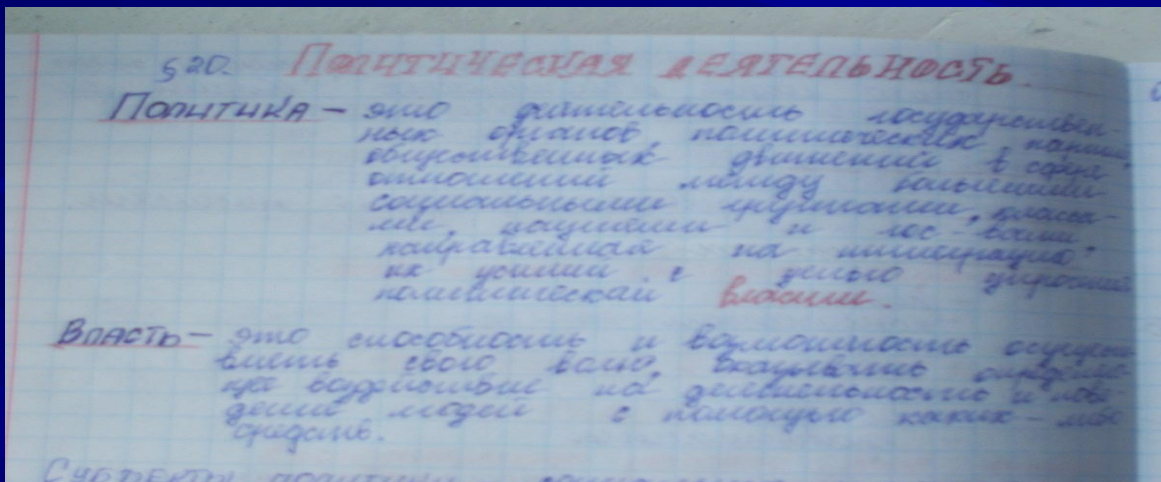 §20. ПОЛИТИЧЕСКАЯ ДЕЯТЕЛЬНОСТЬ.
ПОЛИТИКА – это деятельность государствен-
ных органов политических партий,
общественных движений в сфере
отношений между большими
социальными группами, класса-
ми, нациями и гос-вами
направленная на интеграцию
их усилий с целью
политической власти.
ВЛАСТЬ – это способность и возможность осущест
влять свою волю, оказывать определен
ное воздействие на деятельность и пове
дение людей с помощью каких-либо
средств.
СУБЪЕКТЫ политики